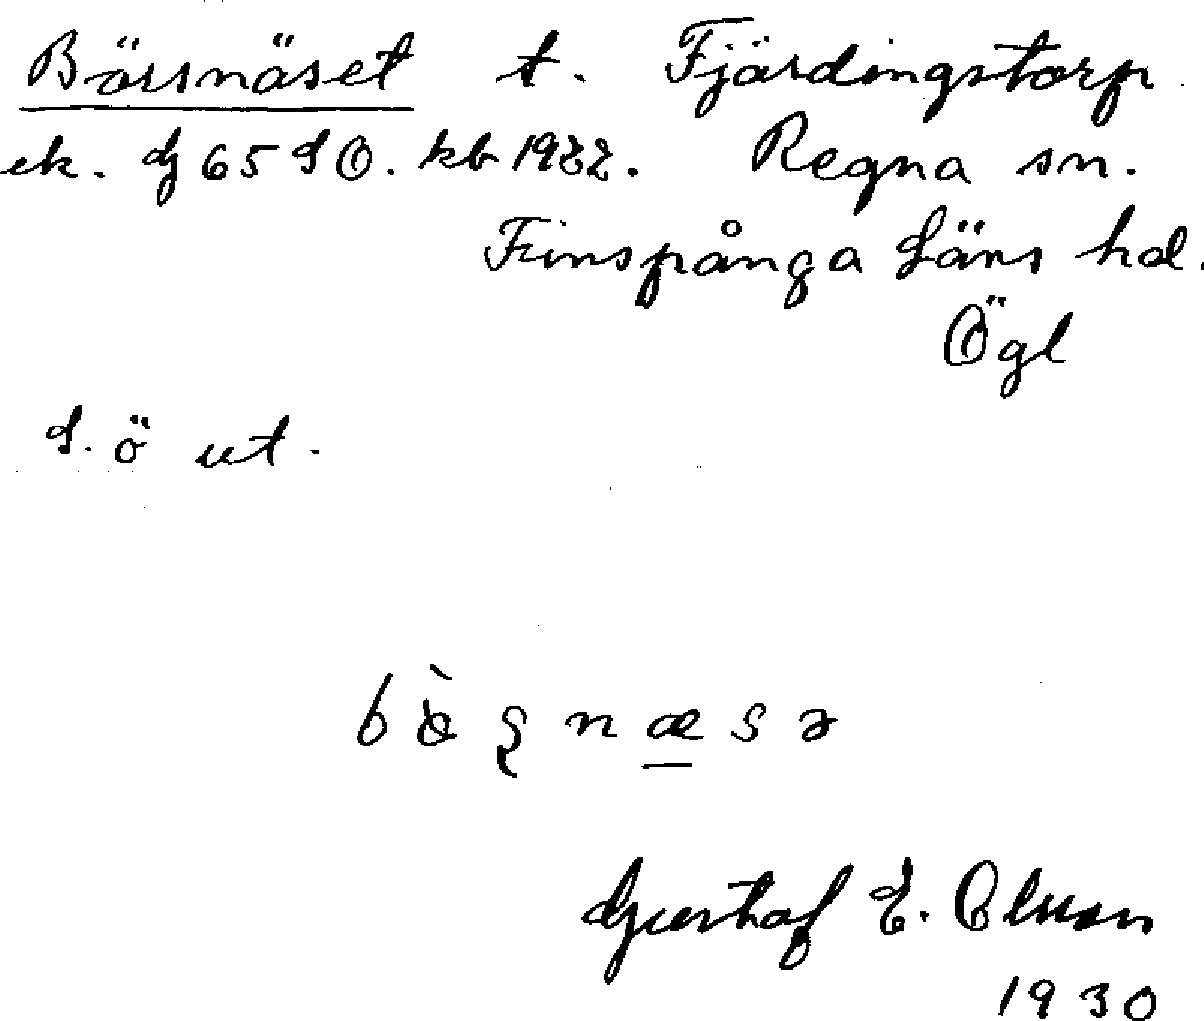 Börsnäset t. Fjärdingstorp
ek. bl 65 SO. kb 1932. Regna sn.
Finspånga Läns hd.
Ögl
S. ö ut.
Gustaf E. Olsson
1930